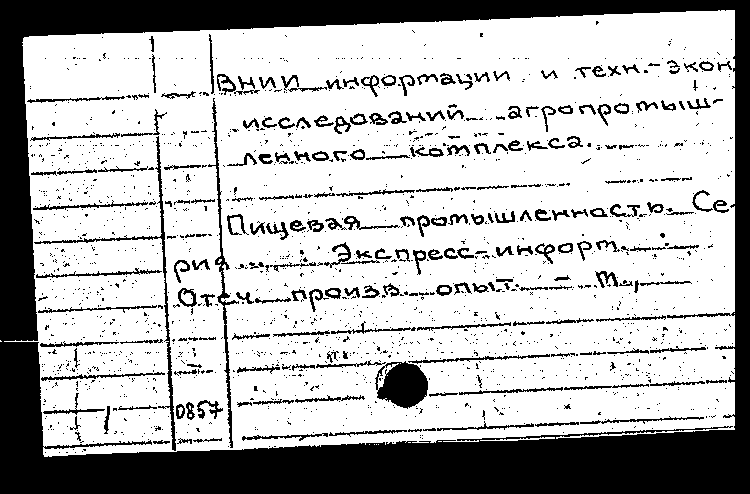 ВНИИ информации и техн.-экон.
исследований агропромыш-
ленного комплекса.
Пищевая промышленность. Се-
рия... : Экспресс-информ. :
Отеч. произв. опыт. - М.,
0857